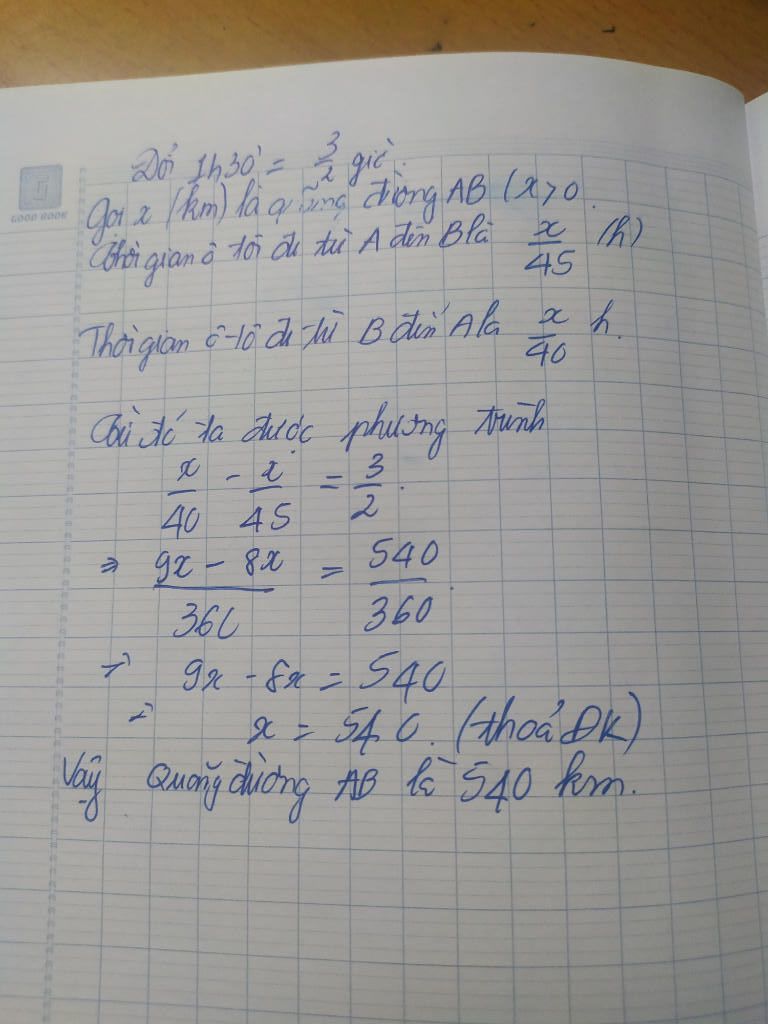 GOOD BOOK
Đổi 1h30' = 3/2 giờ.
Gọi x (km) là quãng đường AB (x > 0.
Thời gian ô tô đi từ A đến B là x/45 (h)
Thời gian ô-tô đi từ B đến A là x/40 h.
Từ đó ta được phương trình
x/40 - x/45 = 3/2.
⇒ (9x - 8x)/360 = 540/360.
⇒ 9x - 8x = 540
⇒ x = 540. (thoả ĐK)
Vậy Quãng đường AB là 540 km.